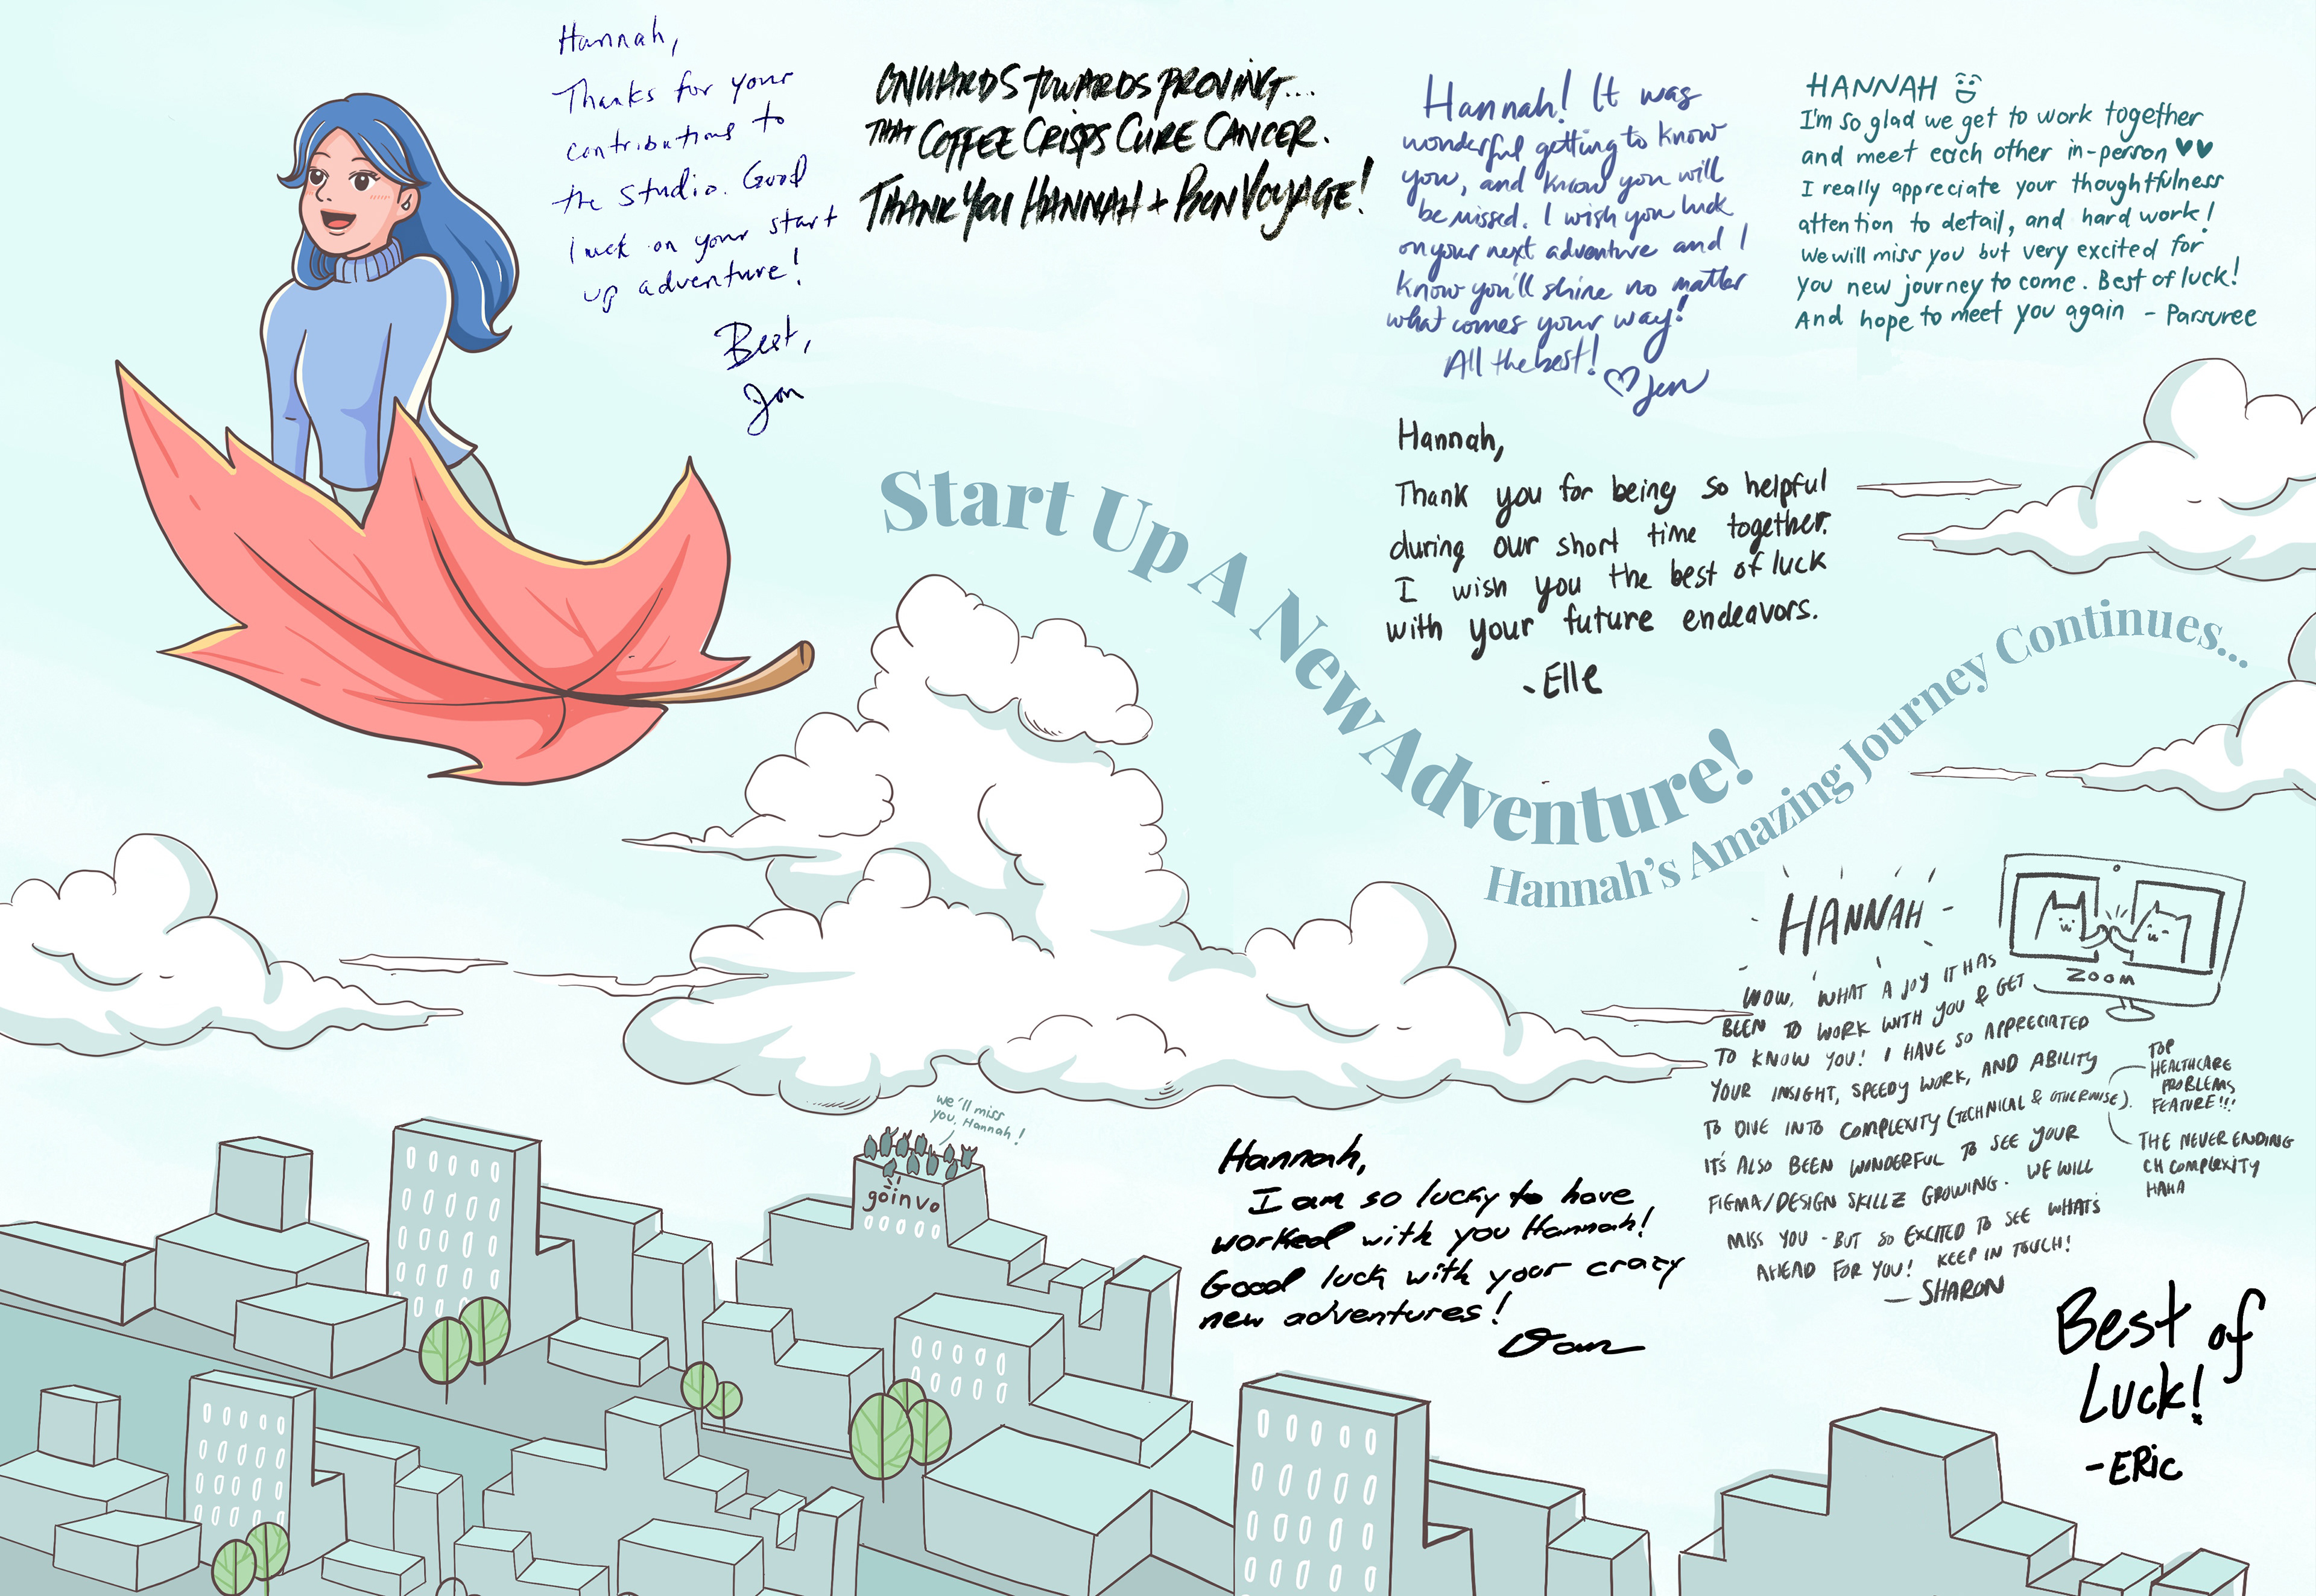 Hannah,
Thanks for your
contributions to
the studio. Good
luck on your start
up adventure!
Best,
Jon
ONWARDS TOWARDS PROVING...
THAT COFFEE CRISPS CURE CANCER.
THANK YOU HANNAH + BON VOYAGE!
Hannah! It was
wonderful getting to know
you, and know you will
be missed. I wish you luck
on your next adventure and I
know you'll shine no matter
what comes your way!
All the best!
♡ Jen
HANNAH
I'm so glad we get to work together
and meet each other in-person ♥♥
I really appreciate your thoughtfulness
attention to detail, and hard work!
We will miss you but very excited for
you new journey to come. Best of luck!
And hope to meet you again - Parsuree
Hannah,
Thank you for being so helpful
during our short time together.
I wish you the best of luck
with your future endeavors.
- Elle
Start Up A New Adventure!
Hannah's Amazing Journey Continues...
- HANNAH -
WOW, WHAT A JOY IT HAS
BEEN TO WORK WITH YOU & GET
TO KNOW YOU! I HAVE SO APPRECIATED
YOUR INSIGHT, SPEEDY WORK, AND ABILITY
TO DIVE INTO COMPLEXITY (TECHNICAL & OTHERWISE).
IT'S ALSO BEEN WONDERFUL TO SEE YOUR
FIGMA/DESIGN SKILLZ GROWING. WE WILL
MISS YOU - BUT SO EXCITED TO SEE WHAT'S
AHEAD FOR YOU! KEEP IN TOUCH!
— SHARON
ZOOM
TOP
HEALTHCARE
PROBLEMS
FEATURE!!!
THE NEVER ENDING
CH COMPLEXITY
HAHA
we'll miss
you, Hannah!
goinvo
Hannah,
I am so lucky to have
worked with you Hannah!
Good luck with your crazy
new adventures!
Dan
Best of
Luck!
- ERic